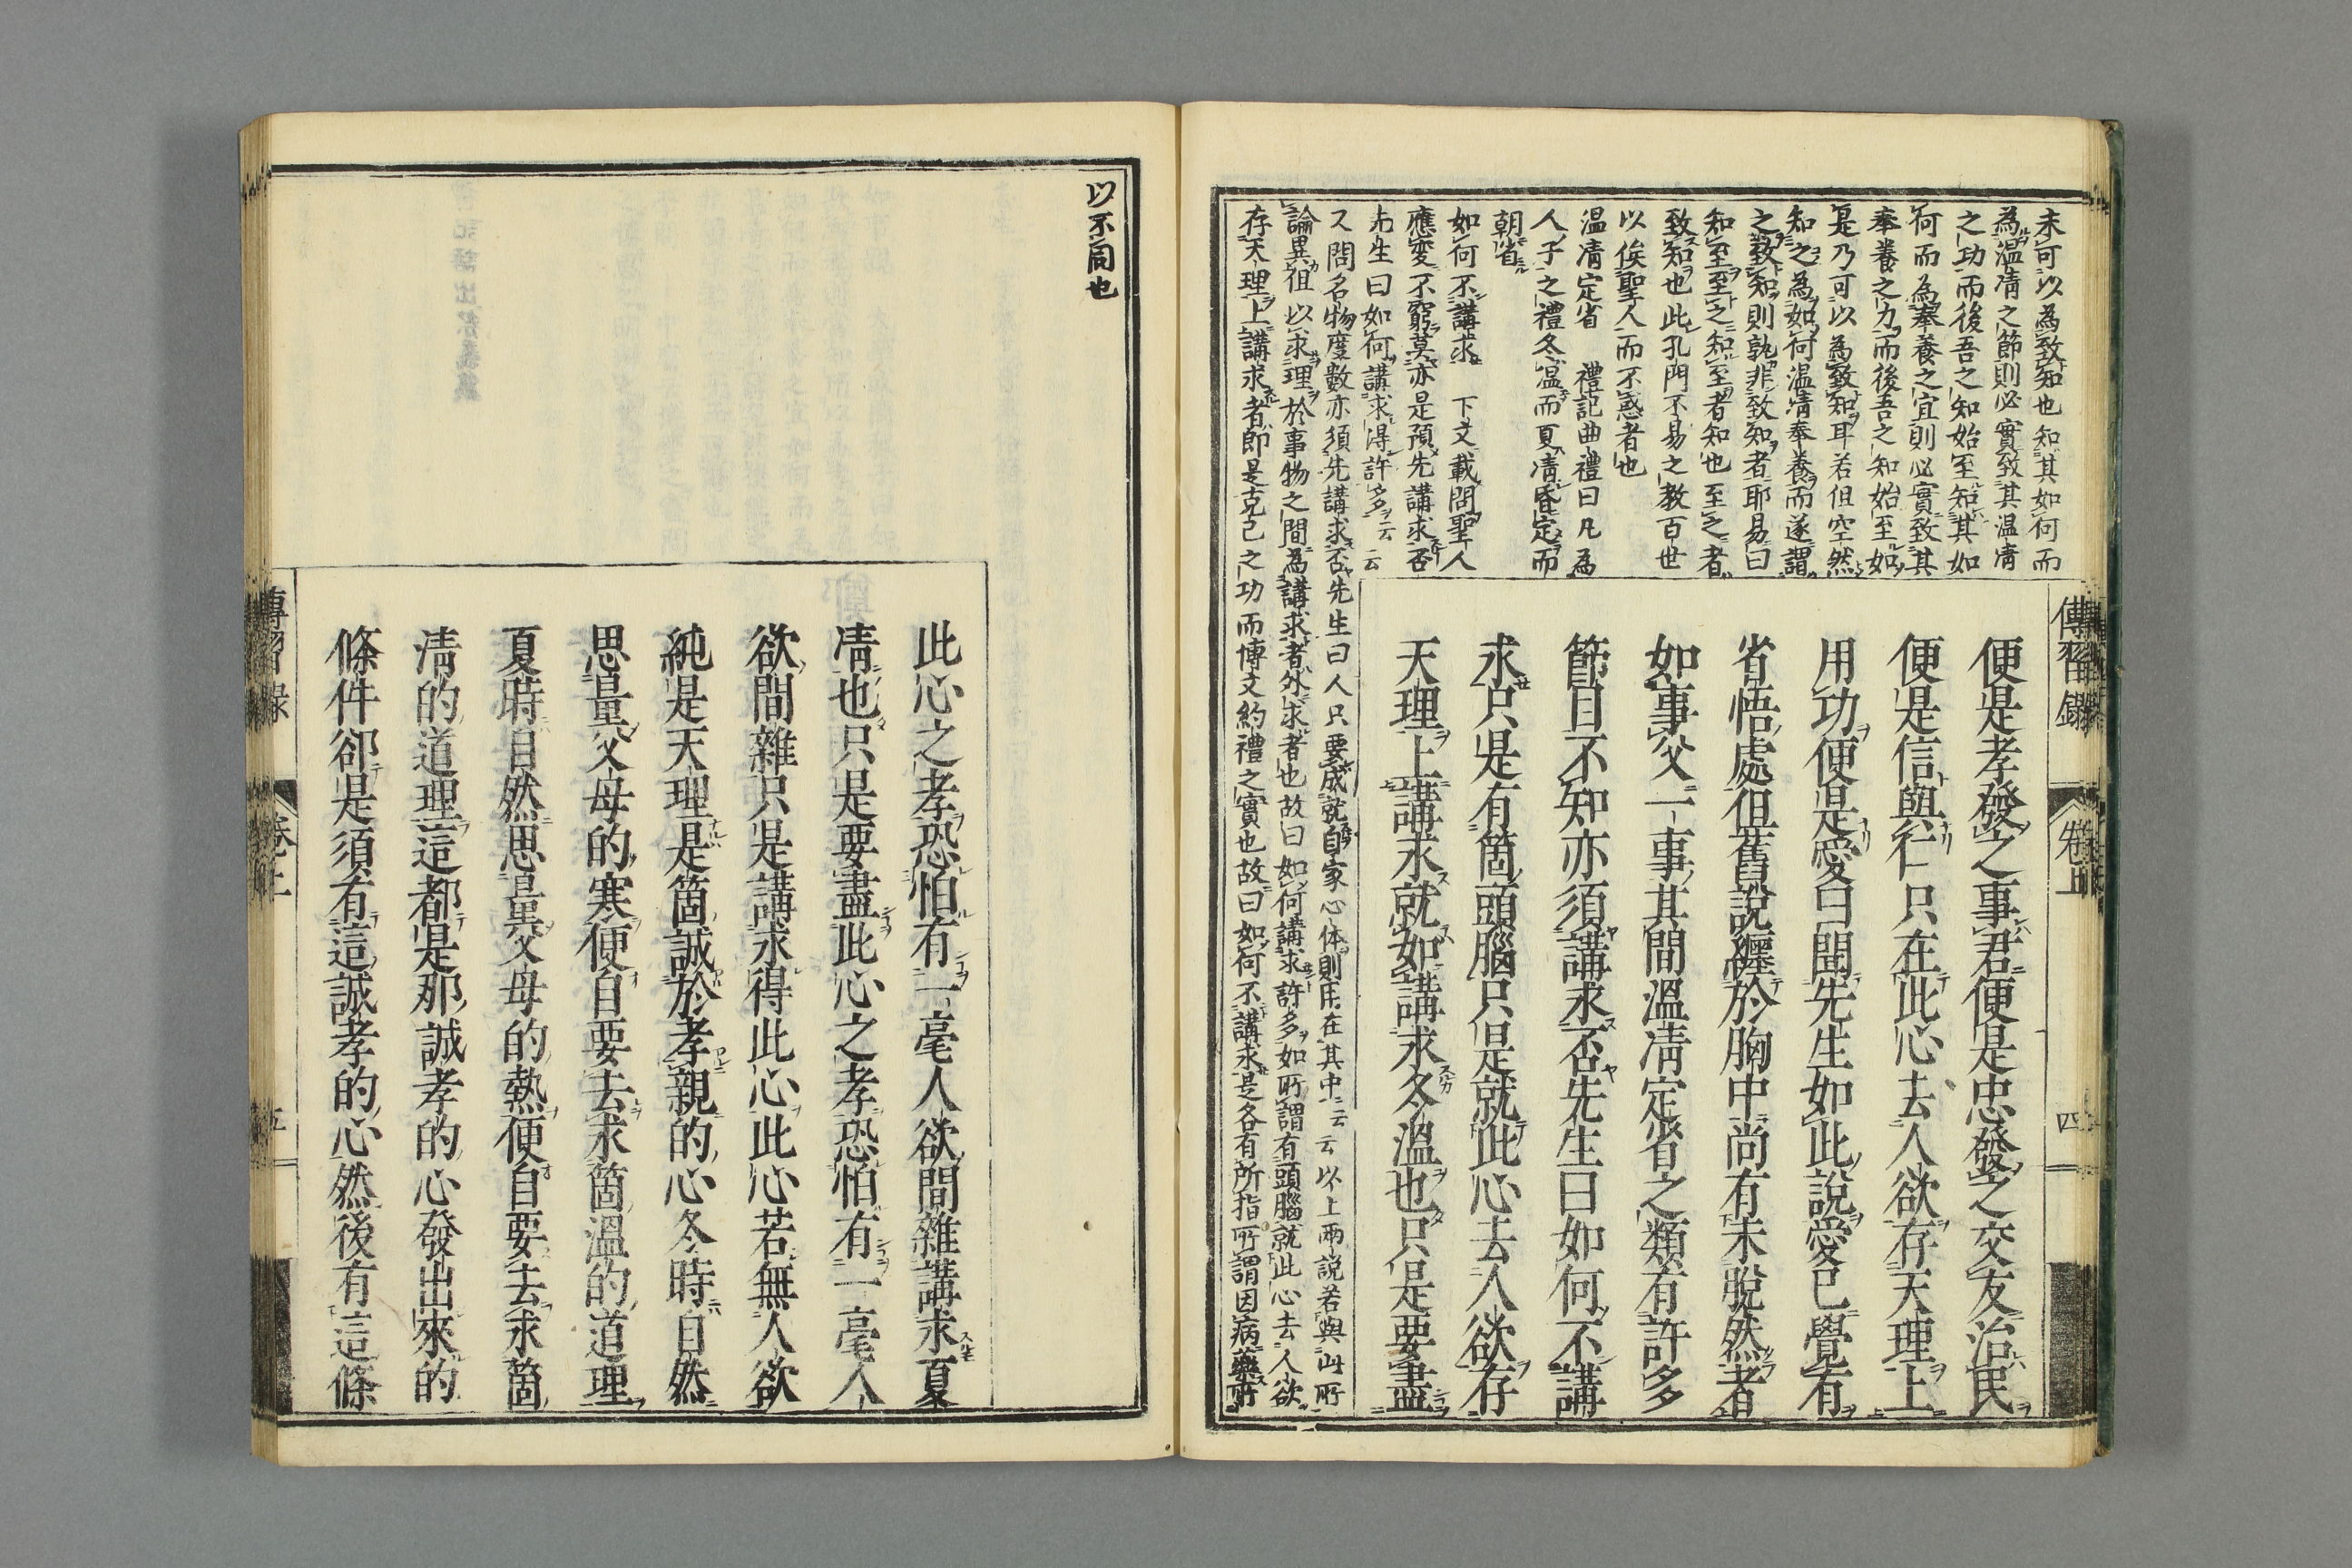 未可以為致知也知其如何而
為温凊之節則必實致其温凊
之功而後吾之知始至知其如
何而為奉養之宜則必實致其
奉養之力而後吾之知始至如
是乃可以為致知耳若但空然
知之為如何温凊奉養而遂謂
之致知則孰非致知者耶易曰
知至至之知至者知也至之者
致知也此孔門不易之教百世
以俟聖人而不惑者也
温凊定省　禮記曲禮曰凡為
人子之禮冬温而夏凊昏定而
朝省
如何不講求　下文載問聖人
應変不窮莫亦是預先講求否
先生曰如何講求得許多云云
又問名物度數亦須先講求否先生曰人只要成就自家心体則用在其中云云以上兩說若與此所
論異徂以求理於事物之間為講求者外求者也故曰如何講求許多如所謂有頭腦就此心去人欲
存天理上講求者即是克己之功而博文約禮之實也故曰如何不講求是各有所指所謂因病藥所
傳習錄
卷上
四
便是孝發之事君便是忠發之交友治民
便是信與仁只在此心去人欲存天理上
用功便是愛曰聞先生如此說愛已覺有
省悟處但舊說纏於胸中尚有未脫然者
如事父一事其間溫凊定省之類有許多
節目不知亦須講求否先生曰如何不講
求只是有箇頭腦只是就此心去人欲存
天理上講求就如講求冬溫也只是要盡
以不同也
此心之孝恐怕有一毫人欲間雜講求夏
凊也只是要盡此心之孝恐怕有一毫人
欲間雜只是講求得此心此心若無人欲
純是天理是箇誠於孝親的心冬時自然
思量父母的寒便自要去求箇溫的道理
夏時自然思量父母的熱便自要去求箇
凊的道理這都是那誠孝的心發出來的
條件卻是須有這誠孝的心然後有這條
傳習錄
卷上
五